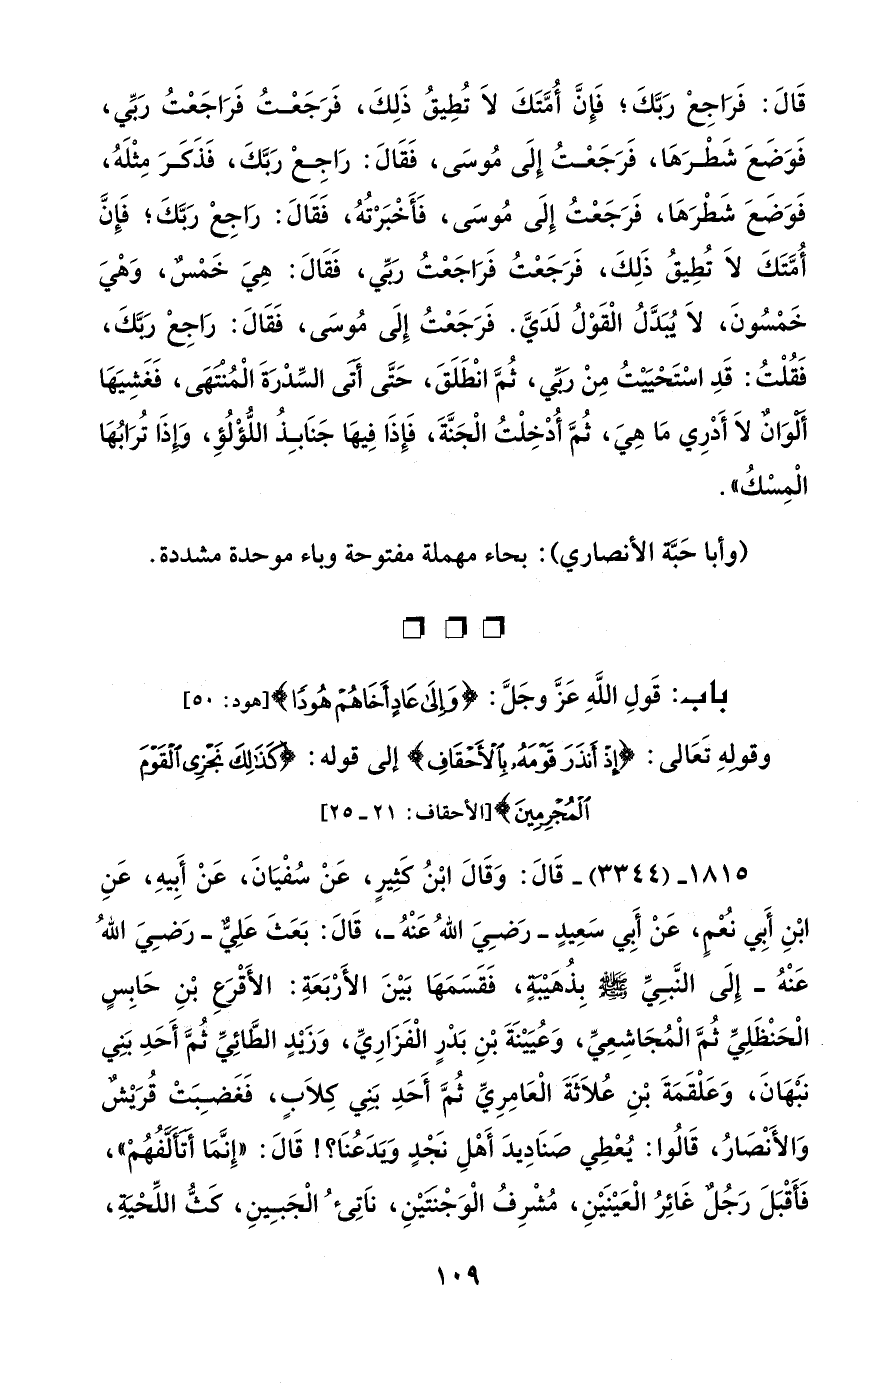 قَالَ: فَرَاجِعْ رَبَّكَ؛ فَإِنَّ أُمَّتَكَ لاَ تُطِيقُ ذَلِكَ، فَرَجَعْتُ فَرَاجَعْتُ رَبِّي،
فَوَضَعَ شَطْرَهَا، فَرَجَعْتُ إِلَى مُوسَى، فَقَالَ: رَاجِعْ رَبَّكَ، فَذَكَرَ مِثْلَهُ،
فَوَضَعَ شَطْرَهَا، فَرَجَعْتُ إِلَى مُوسَى، فَأَخْبَرْتُهُ، فَقَالَ: رَاجِعْ رَبَّكَ؛ فَإِنَّ
أُمَّتَكَ لاَ تُطِيقُ ذَلِكَ، فَرَجَعْتُ فَرَاجَعْتُ رَبِّي، فَقَالَ: هِيَ خَمْسٌ، وَهْيَ
خَمْسُونَ، لاَ يُبَدَّلُ الْقَوْلُ لَدَيَّ. فَرَجَعْتُ إِلَى مُوسَى، فَقَالَ: رَاجِعْ رَبَّكَ،
فَقُلْتُ: قَدِ اسْتَحْيَيْتُ مِنْ رَبِّي، ثُمَّ انْطَلَقَ، حَتَّى أَتَى السِّدْرَةَ الْمُنْتَهَى، فَغَشِيَهَا
أَلْوَانٌ لاَ أَدْرِي مَا هِيَ، ثُمَّ أُدْخِلْتُ الْجَنَّةَ، فَإِذَا فِيهَا جَنَابِذُ اللُّؤْلُؤِ، وَإِذَا تُرَابُهَا
الْمِسْكُ».
(وأبا حَبَّة الأنصاري): بحاء مهملة مفتوحة وباء موحدة مشددة.
باب: قَولِ اللَّهِ عَزَّ وجَلَّ: ﴿وَإِلَىٰ عَادٍ أَخَاهُمْ هُودًا﴾[هود: ٥٠]
وقولِهِ تَعَالى: ﴿إِذْ أَنذَرَ قَوْمَهُۥ بِٱلْأَحْقَافِ﴾ إلى قوله: ﴿كَذَٰلِكَ نَجْزِى ٱلْقَوْمَ
ٱلْمُجْرِمِينَ﴾[الأحقاف: ٢١ ـ ٢٥]
١٨١٥ ـ (٣٣٤٤) ـ قَالَ: وَقَالَ ابْنُ كَثِيرٍ، عَنْ سُفْيَانَ، عَنْ أَبِيهِ، عَنِ
ابْنِ أَبِي نُعْمٍ، عَنْ أَبِي سَعِيدٍ ـ رَضِيَ اللهُ عَنْهُ ـ، قَالَ: بَعَثَ عَلِيٌّ ـ رَضِيَ اللهُ
عَنْهُ ـ إِلَى النَّبِيِّ ﷺ بِذُهَيْبَةٍ، فَقَسَمَهَا بَيْنَ الأَرْبَعَةِ: الأَقْرَعِ بْنِ حَابِسٍ
الْحَنْظَلِيِّ ثُمَّ الْمُجَاشِعِيِّ، وَعُيَيْنَةَ بْنِ بَدْرٍ الْفَزَارِيِّ، وَزَيْدٍ الطَّائِيِّ ثُمَّ أَحَدِ بَنِي
نَبْهَانَ، وَعَلْقَمَةَ بْنِ عُلاَثَةَ الْعَامِرِيِّ ثُمَّ أَحَدِ بَنِي كِلاَبٍ، فَغَضِبَتْ قُرَيْشٌ
وَالأَنْصَارُ، قَالُوا: يُعْطِي صَنَادِيدَ أَهْلِ نَجْدٍ وَيَدَعُنَا؟! قَالَ: «إِنَّمَا أَتَأَلَّفُهُمْ»،
فَأَقْبَلَ رَجُلٌ غَائِرُ الْعَيْنَيْنِ، مُشْرِفُ الْوَجْنَتَيْنِ، نَاتِئُ الْجَبِينِ، كَثُّ اللِّحْيَةِ،
١٠٩